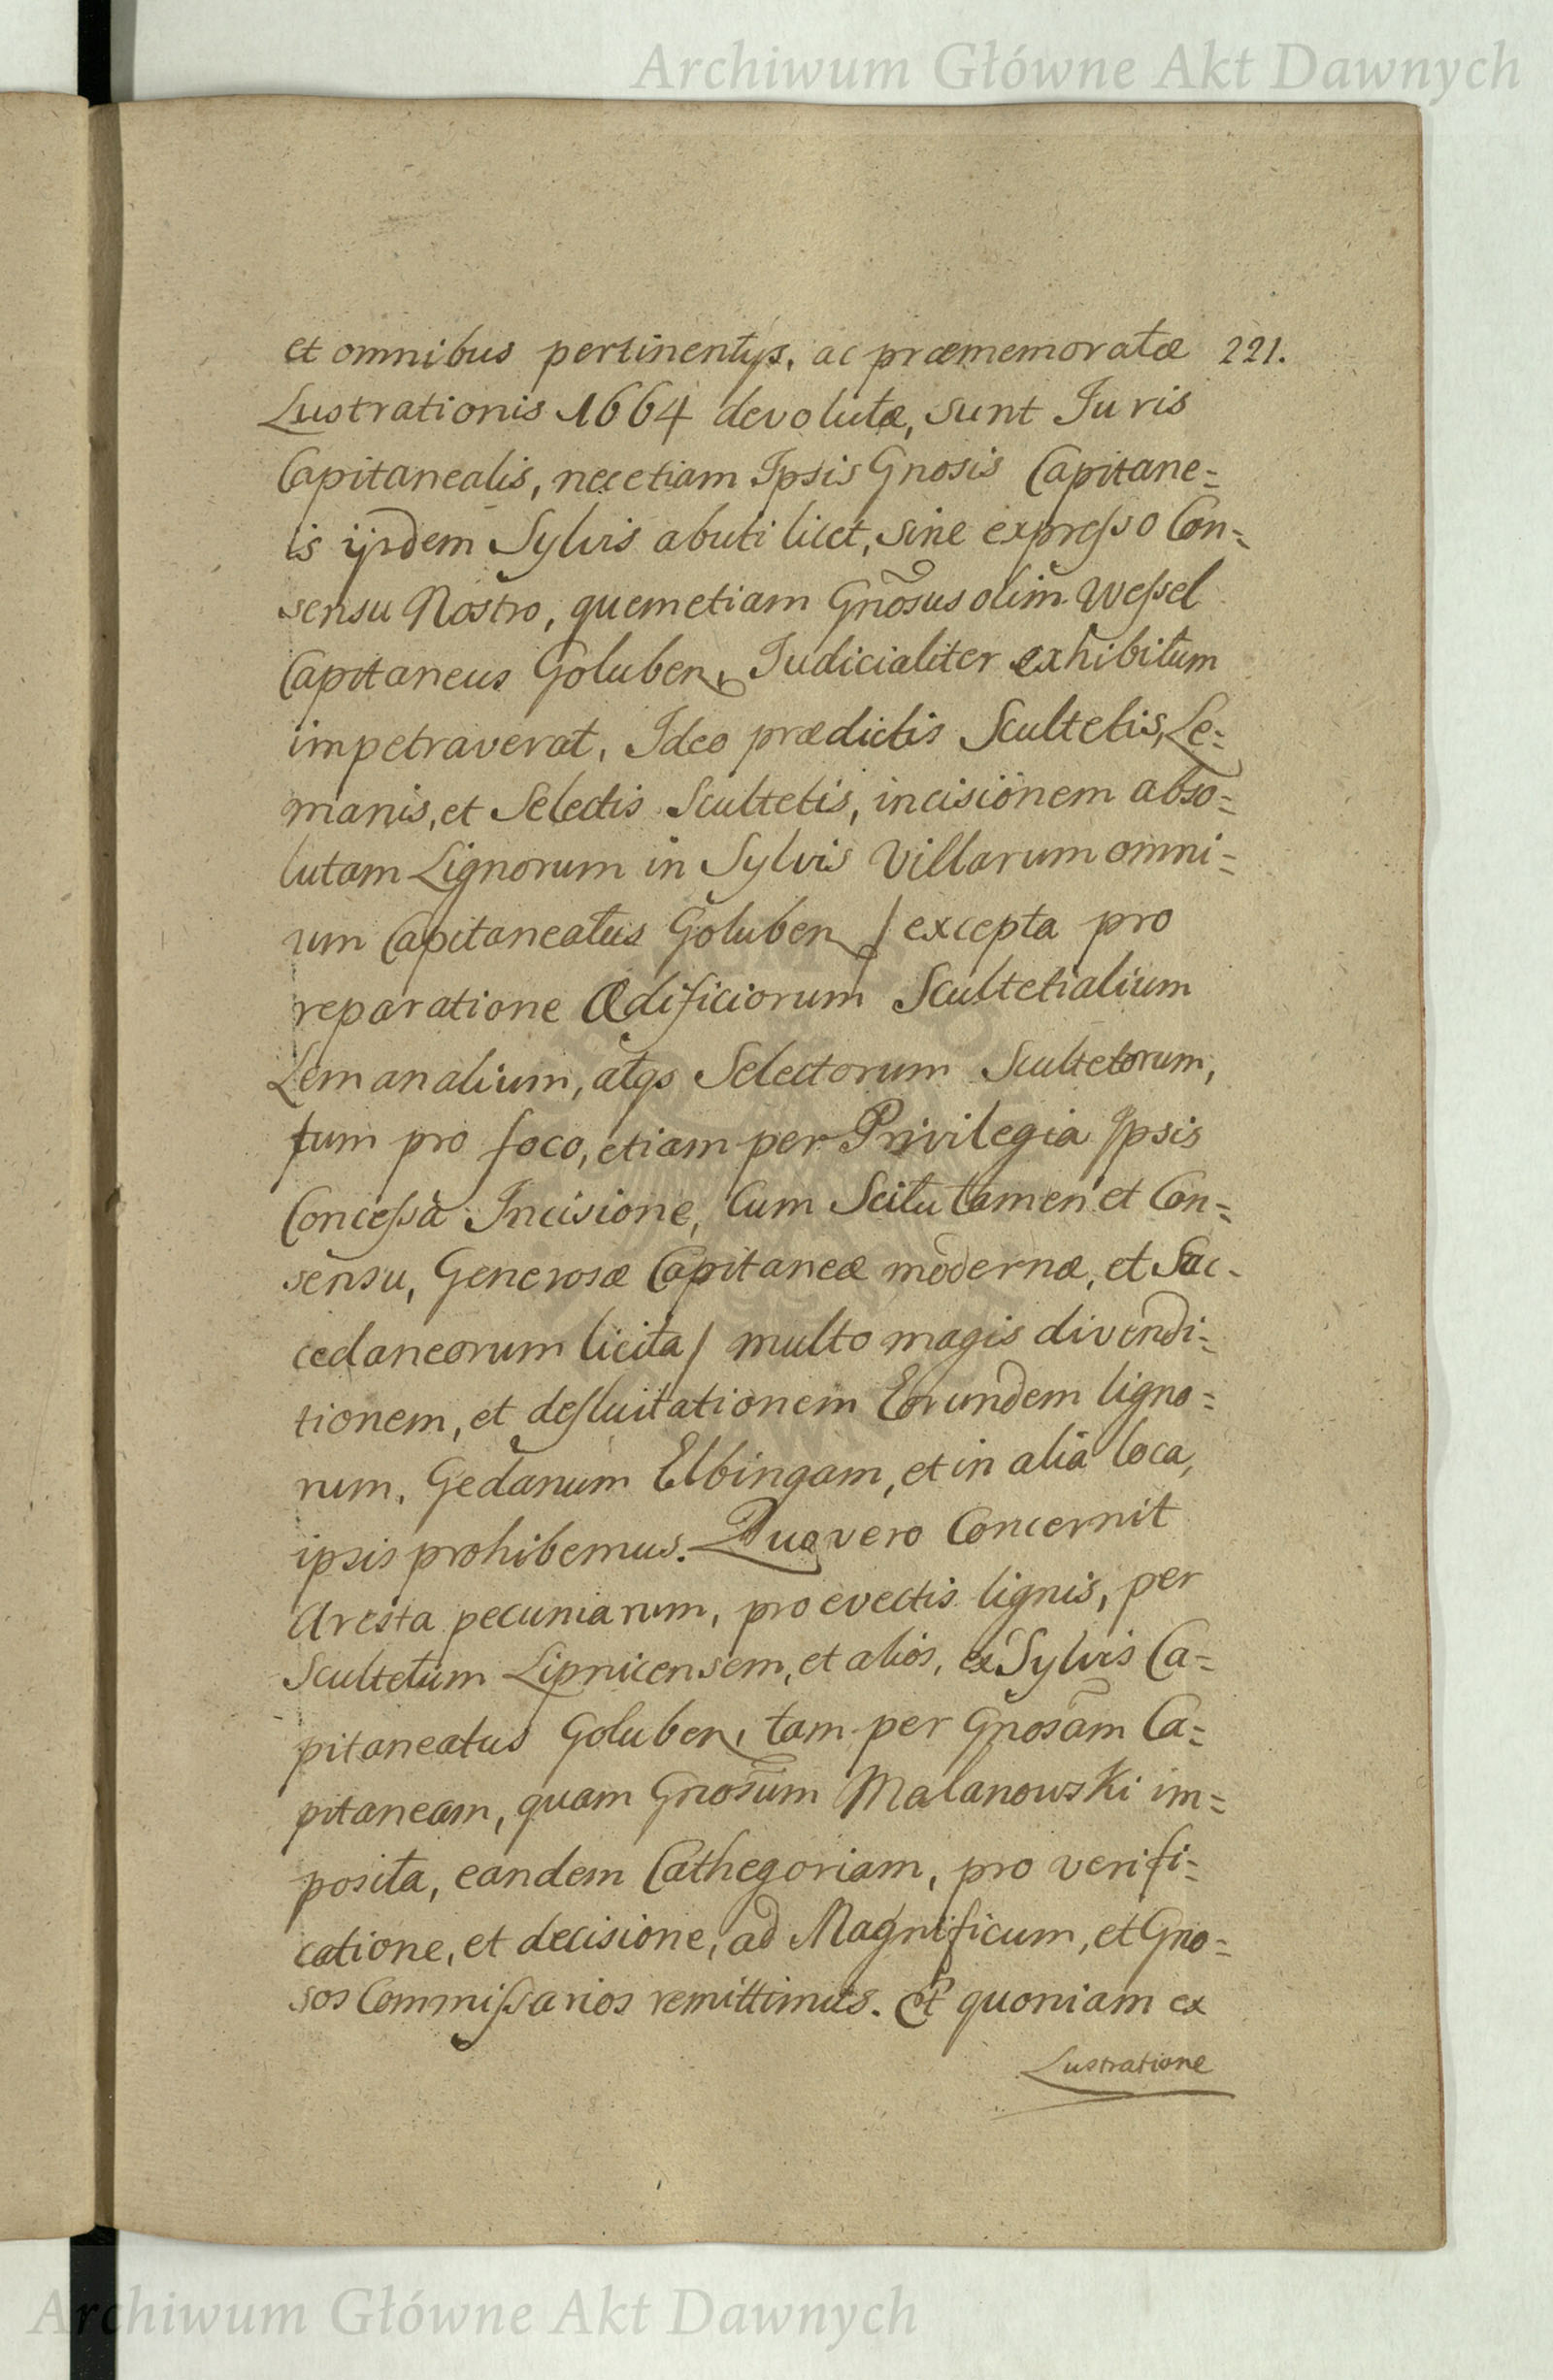 Archiwum Główne Akt Dawnych
et omnibus pertinentys, ac præmemoratæ 221.
Lustrationis 1664 devolutæ, sunt Iuris
Capitanealis, nec etiam Ipsis Gnosis Capitane=
is ijsdem Sylvis abuti licet, sine expresso Con=
sensu Nostro, quem etiam Gnosus olim Wessel
Capitaneus Goluben, Iudicialiter exhibitum
impetraverat, Ideo prædictis Scultetis, Le=
manis, et Selectis Scultetis, incisionem abso=
lutam Lignorum in Sylvis Villarum omni=
um Capitaneatus Goluben / excepta pro
reparatione Ædificiorum Scultetialium
Lemanalium, atqs Selectorum Scultetorum,
tum pro foco, etiam per Privilegia Ipsis
Concessa Incisione, Cum Scitu tamen et Con=
sensu, Generosæ Capitaneæ modernæ, et Suc-
cedaneorum licita / multo magis divendi=
tionem, et defluitationem Eorundem ligno=
rum, Gedanum Elbingam, et in alia loca,
ipsis prohibemus. Quo vero Concernit
Aresta pecuniarum, pro evectis lignis, per
Scultetum Lipnicensem, et alios, ex Sylvis Ca=
pitaneatus Goluben, tam per Gnosam Ca=
pitaneam, quam Gnosum Malanowski im=
posita, eandem Cathegoriam, pro verifi=
catione, et decisione, ad Magnificum, et Gno=
sos Commissarios remittimus. Et quoniam ex
Lustratione
Archiwum Główne Akt Dawnych